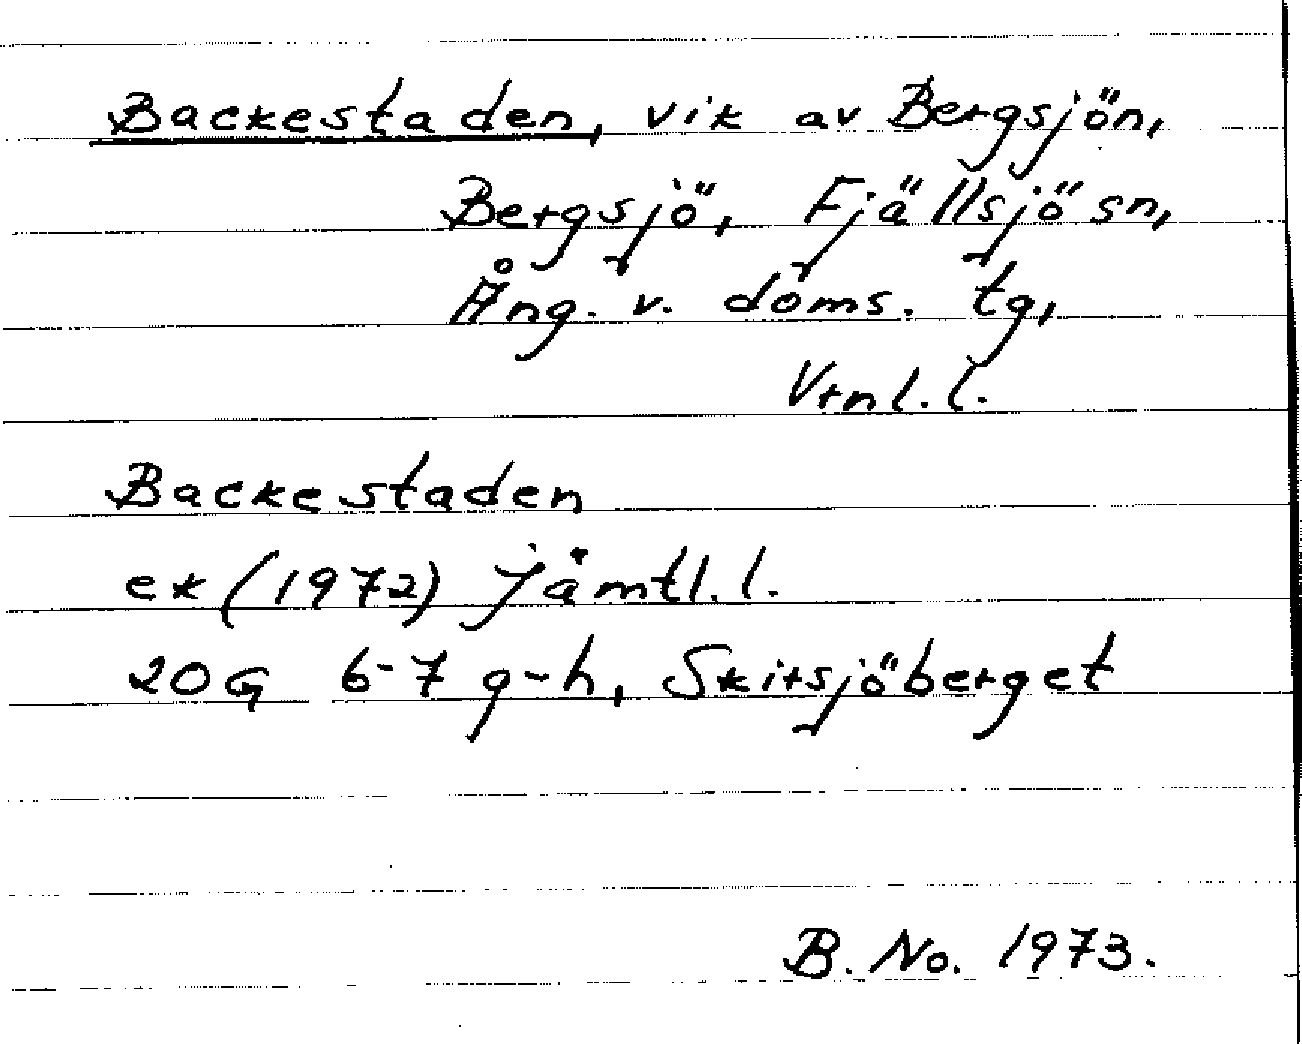 Backestaden, vik av Bergsjön,
Bergsjö, Fjällsjö sn,
Ång. v. doms. tg,
Vrnl. l.
Backestaden
ek (1972) Jämtl. l.
20G 6-7 g-h, Skirsjöberget
B. No. 1973.